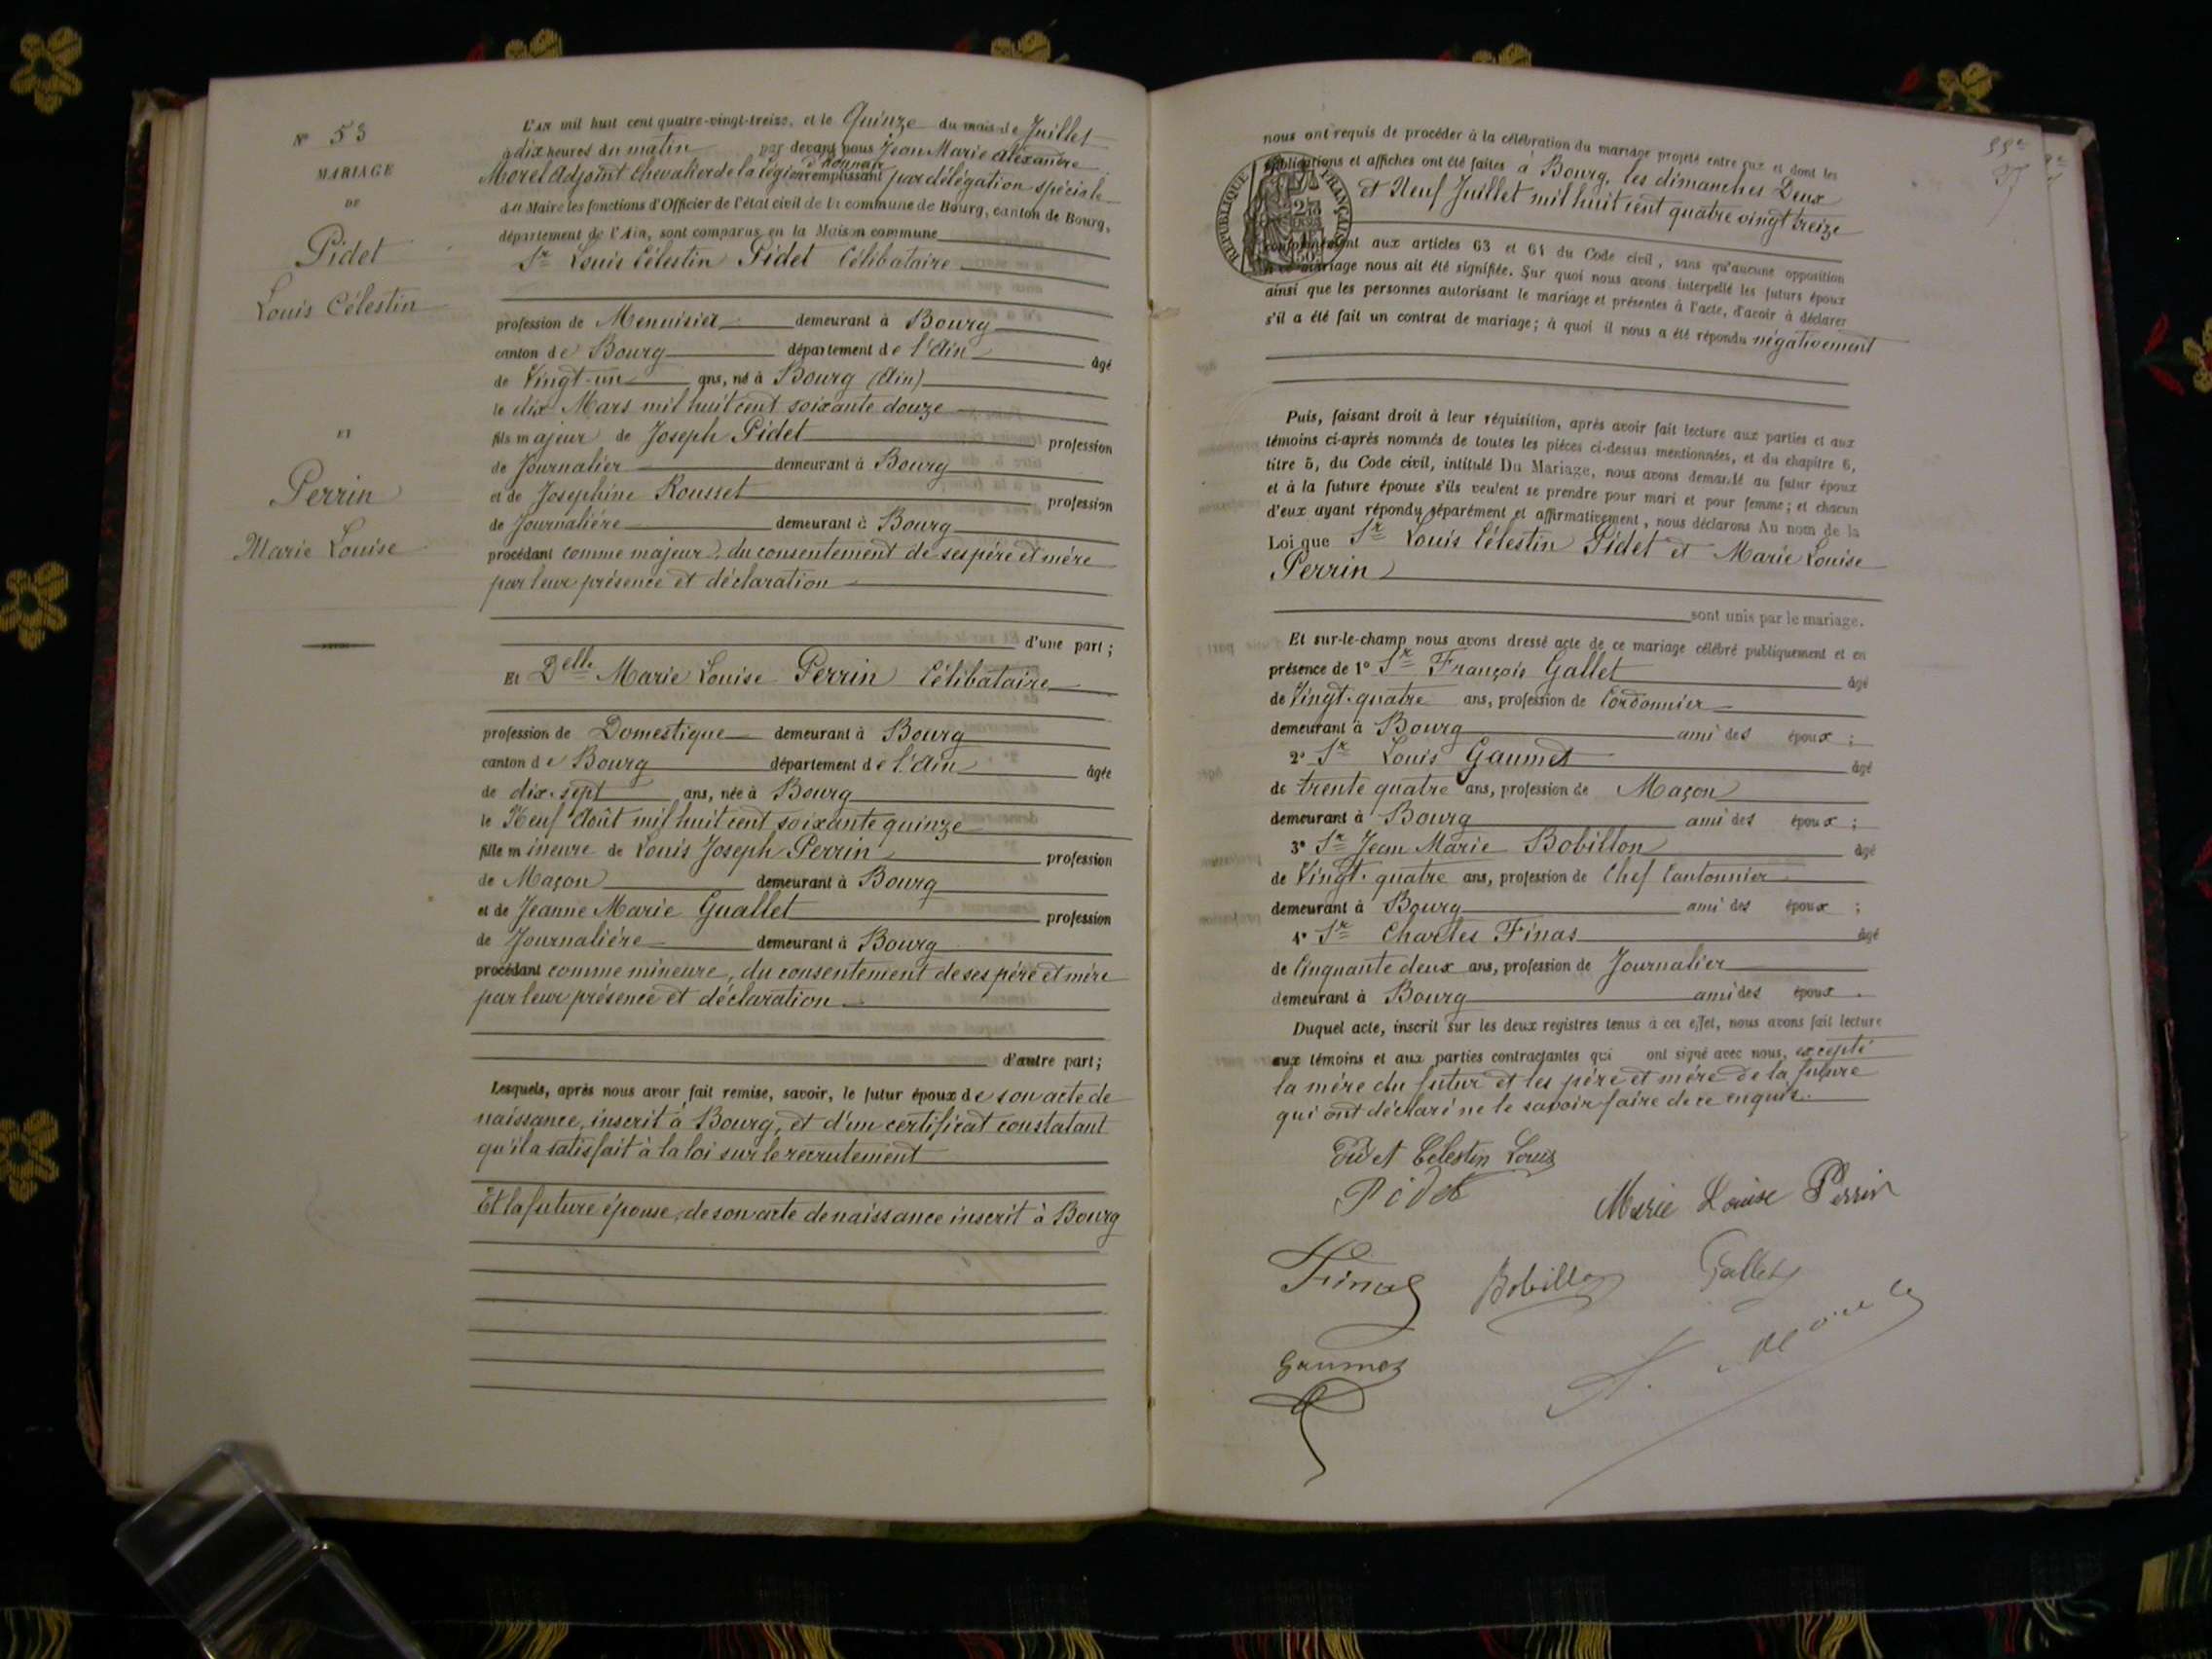 N° 53
MARIAGE
DE
Pidet
Louis Célestin
ET
Perrin
Marie Louise
L'AN mil huit cent quatre-vingt-treize, et le Quinze du mois de Juillet
à dix heures du matin par devant nous Jean Marie Alexandre
d'honneur
Morel Adjoint Chevalier de la légion remplissant par délégation spéciale
du Maire les fonctions d'Officier de l'état civil de la commune de Bourg, canton de Bourg,
département de l'Ain, sont comparus en la Maison commune
Sr Louis Célestin Pidet Célibataire
profession de Menuisier demeurant à Bourg
canton de Bourg département de l'Ain âgé
de Vingt-un ans, né à Bourg (Ain)
le dix Mars mil huit cent soixante douze
fils majeur de Joseph Pidet profession
de Journalier demeurant à Bourg
et de Joséphine Rousset profession
de Journalière demeurant à Bourg
procédant comme majeur, du consentement de ses père et mère
par leur présence et déclaration
d'une part;
Et Delle Marie Louise Perrin Célibataire
profession de Domestique demeurant à Bourg
canton de Bourg département de l'Ain âgée
de dix-sept ans, née à Bourg
le Neuf Août mil huit cent soixante quinze
fille mineure de Louis Joseph Perrin profession
de Maçon demeurant à Bourg
et de Jeanne Marie Guallet profession
de Journalière demeurant à Bourg
procédant comme mineure, du consentement de ses père et mère
par leur présence et déclaration
d'autre part;
Lesquels, après nous avoir fait remise, savoir, le futur époux de son acte de
naissance, inscrit à Bourg, et d'un certificat constatant
qu'il a satisfait à la loi sur le recrutement
Et la future épouse, de son acte de naissance inscrit à Bourg
nous ont requis de procéder à la célébration du mariage projeté entre eux et dont les
publications et affiches ont été faites à Bourg, les dimanches Deux
et Neuf Juillet mil huit cent quatre vingt treize
RÉPUBLIQUE FRANÇAISE
conformément aux articles 63 et 64 du Code civil, sans qu'aucune opposition
à ce mariage nous ait été signifiée. Sur quoi nous avons interpellé les futurs époux
ainsi que les personnes autorisant le mariage et présentes à l'acte, d'avoir à déclarer
s'il a été fait un contrat de mariage; à quoi il nous a été répondu négativement
Puis, faisant droit à leur réquisition, après avoir fait lecture aux parties et aux
témoins ci-après nommés de toutes les pièces ci-dessus mentionnées, et du chapitre 6,
titre 5, du Code civil, intitulé Du Mariage, nous avons demandé au futur époux
et à la future épouse s'ils veulent se prendre pour mari et pour femme; et chacun
d'eux ayant répondu séparément et affirmativement, nous déclarons Au nom de la
Loi que Sr Louis Célestin Pidet et Marie Louise
Perrin
sont unis par le mariage.
Et sur-le-champ nous avons dressé acte de ce mariage célébré publiquement et en
présence de 1° Sr François Gallet âgé
de Vingt-quatre ans, profession de Cordonnier
demeurant à Bourg ami des époux ;
2° Sr Louis Gaumet âgé
de trente quatre ans, profession de Maçon
demeurant à Bourg ami des époux ;
3° Sr Jean Marie Bobillon âgé
de Vingt-quatre ans, profession de Chef Cantonnier
demeurant à Bourg ami des époux ;
4° Sr Charles Finas âgé
de Cinquante deux ans, profession de Journalier
demeurant à Bourg ami des époux .
Duquel acte, inscrit sur les deux registres tenus à cet effet, nous avons fait lecture
aux témoins et aux parties contractantes qui ont signé avec nous, excepté
la mère du futur et les père et mère de la future
qui ont déclaré ne le savoir faire de ce enquis.
Pidet Célestin Louis
Pidet
Marie Louise Perrin
Finas
Bobillon
Gallet
Gaumet